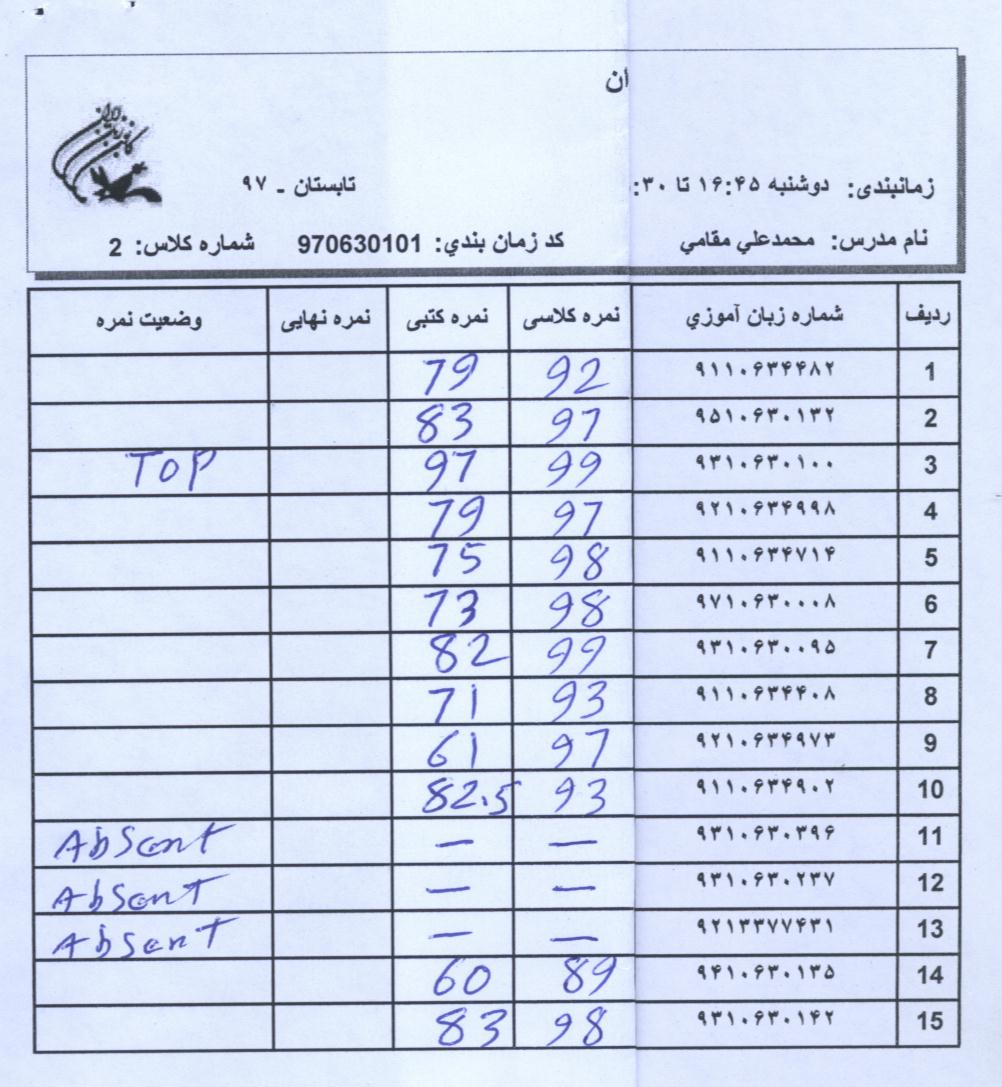 ان
زمانبندی: دوشنبه ۱۶:۴۵ تا ۳۰: تابستان ـ ۹۷
نام مدرس: محمدعلي مقامي کد زمان بندي: 970630101 شماره کلاس: 2
ردیف شماره زبان آموزي نمره کلاسی نمره کتبی نمره نهایی وضعیت نمره
1 ۹۱۱۰۶۳۴۴۸۲ 92 79
2 ۹۵۱۰۶۳۰۱۳۲ 97 83
3 ۹۳۱۰۶۳۰۱۰۰ 99 97 TOP
4 ۹۲۱۰۶۳۴۹۹۸ 97 79
5 ۹۱۱۰۶۳۴۷۱۴ 98 75
6 ۹۷۱۰۶۳۰۰۰۸ 98 73
7 ۹۳۱۰۶۳۰۰۹۵ 99 82
8 ۹۱۱۰۶۳۴۴۰۸ 93 71
9 ۹۲۱۰۶۳۴۹۷۳ 97 61
10 ۹۱۱۰۶۳۴۹۰۲ 93 82.5
11 ۹۳۱۰۶۳۰۳۹۶ — — Absent
12 ۹۳۱۰۶۳۰۲۳۷ — — Absent
13 ۹۲۱۳۳۷۷۴۳۱ — — Absent
14 ۹۴۱۰۶۳۰۱۳۵ 89 60
15 ۹۳۱۰۶۳۰۱۴۲ 98 83